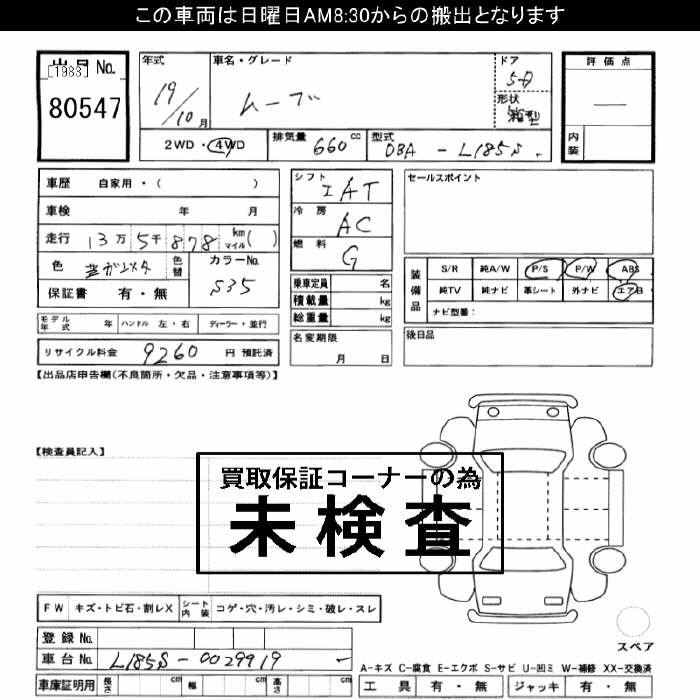 この車両は日曜日AM8:30からの搬出となります
出品No.
[1983]
80547
年式
19/10月
車名・グレード
ムーブ
ドア
5D
形状
箱型
評価点
―
内装
2WD・4WD
排気量 660 cc
型式 DBA - L185S
車歴 自家用・( )
車検 年 月
走行 13万5千878 km マイル( )
色
色替
カラーNo.
S35
保証書 有・無
シフト IAT
冷房 AC
燃料 G
乗車定員 名
積載量 kg
総重量 kg
名変期限
月 日
セールスポイント
装備品
S/R 純A/W P/S P/W ABS
純TV 純ナビ 革シート 外ナビ エアB
ナビ型番:
後日品
モデル年式 年 ハンドル 左・右 ディーラー・並行
リサイクル料金 9260 円 預託済
【出品店申告欄(不良箇所・欠品・注意事項等)】
【検査員記入】
買取保証コーナーの為
未検査
FW キズ・トビ石・割レX
シート内装 コゲ・穴・汚レ・シミ・破レ・スレ
登録No.
車台No. L185S-0029919
車庫証明用 長さ cm 幅 cm 高さ cm
スペア
A-キズ C-腐食 E-エクボ S-サビ U-凹ミ W-補修 XX-交換済
工具 有・無 ジャッキ 有・無